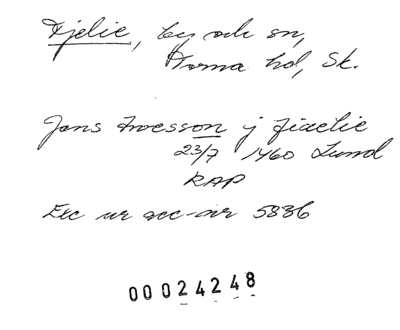 Fjelie, by och sn,
Torna hd, Sk.
Jons Twesson j Fiælie
23/7 1460 Lund
RAP
Exc ur acc-nr 5836
00024248